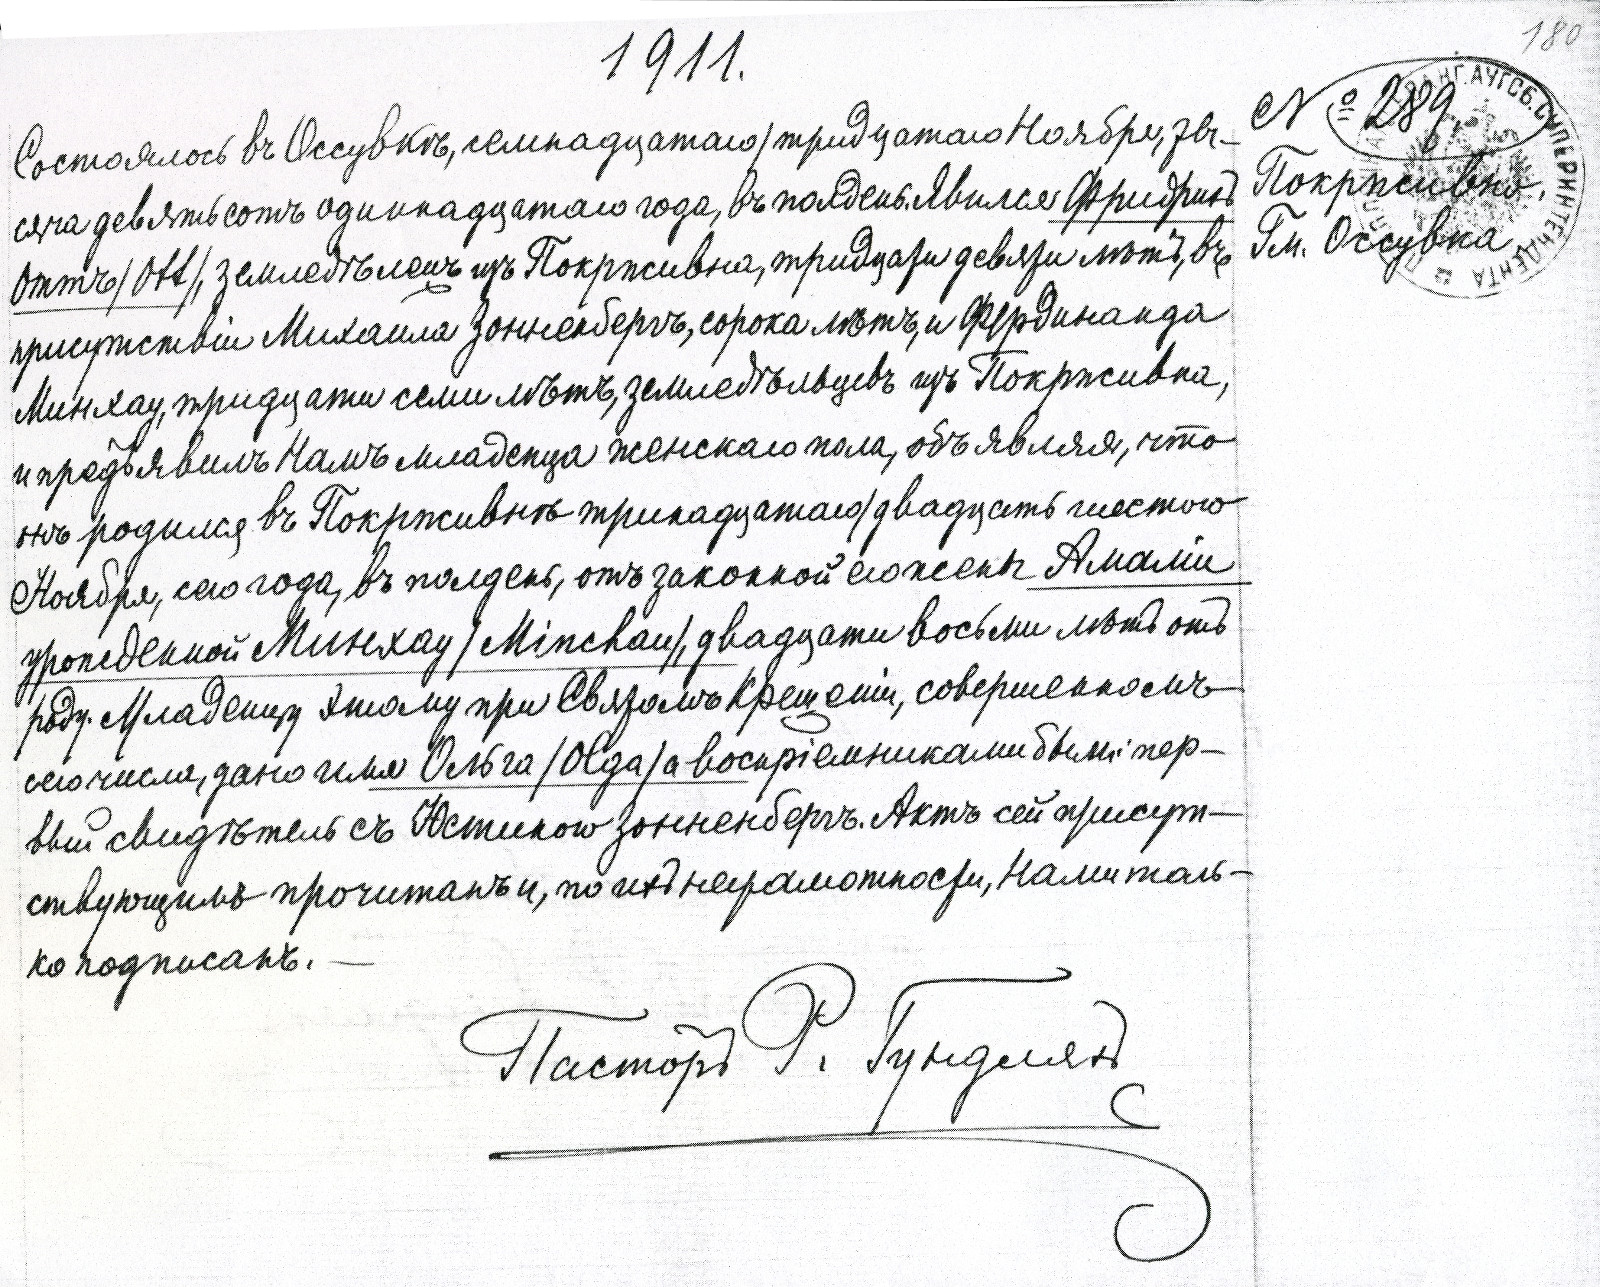 180
1911.
№ 289
Покрживно,
Гм. Оссувка
Состоялось въ Оссувкѣ, семнадцатаго/тридцатаго Ноября, ты-
сяча девятьсотъ одиннадцатаго года, въ полдень. Явился Фридрихъ
Оттъ/Ott/, земледѣлецъ изъ Покрживна, тридцати девяти лѣтъ, въ
присутствіи Михаила Зонненбергъ, сорока лѣтъ, и Фердинанда
Минхау, тридцати семи лѣтъ, земледѣльцевъ изъ Покрживна,
и предъявилъ Намъ младенца женскаго пола, объявляя, что
онъ родился въ Покрживнѣ тринадцатаго/двадцать шестого
Ноября, сего года, въ полдень, отъ законной его жены Амаліи
урожденной Минхау/Minchau/, двадцати восьми лѣтъ отъ
роду. Младенцу этому при Святомъ Крещеніи, совершенномъ
сего числа, дано имя Ольга/Olga/а воспріемниками были: пер-
вый свидѣтель съ Юстиною Зонненбергъ. Актъ сей присут-
ствующимъ прочитанъ и, по ихъ неграмотности, Нами толь-
ко подписанъ. —
Пасторъ Р. Гундляхъ